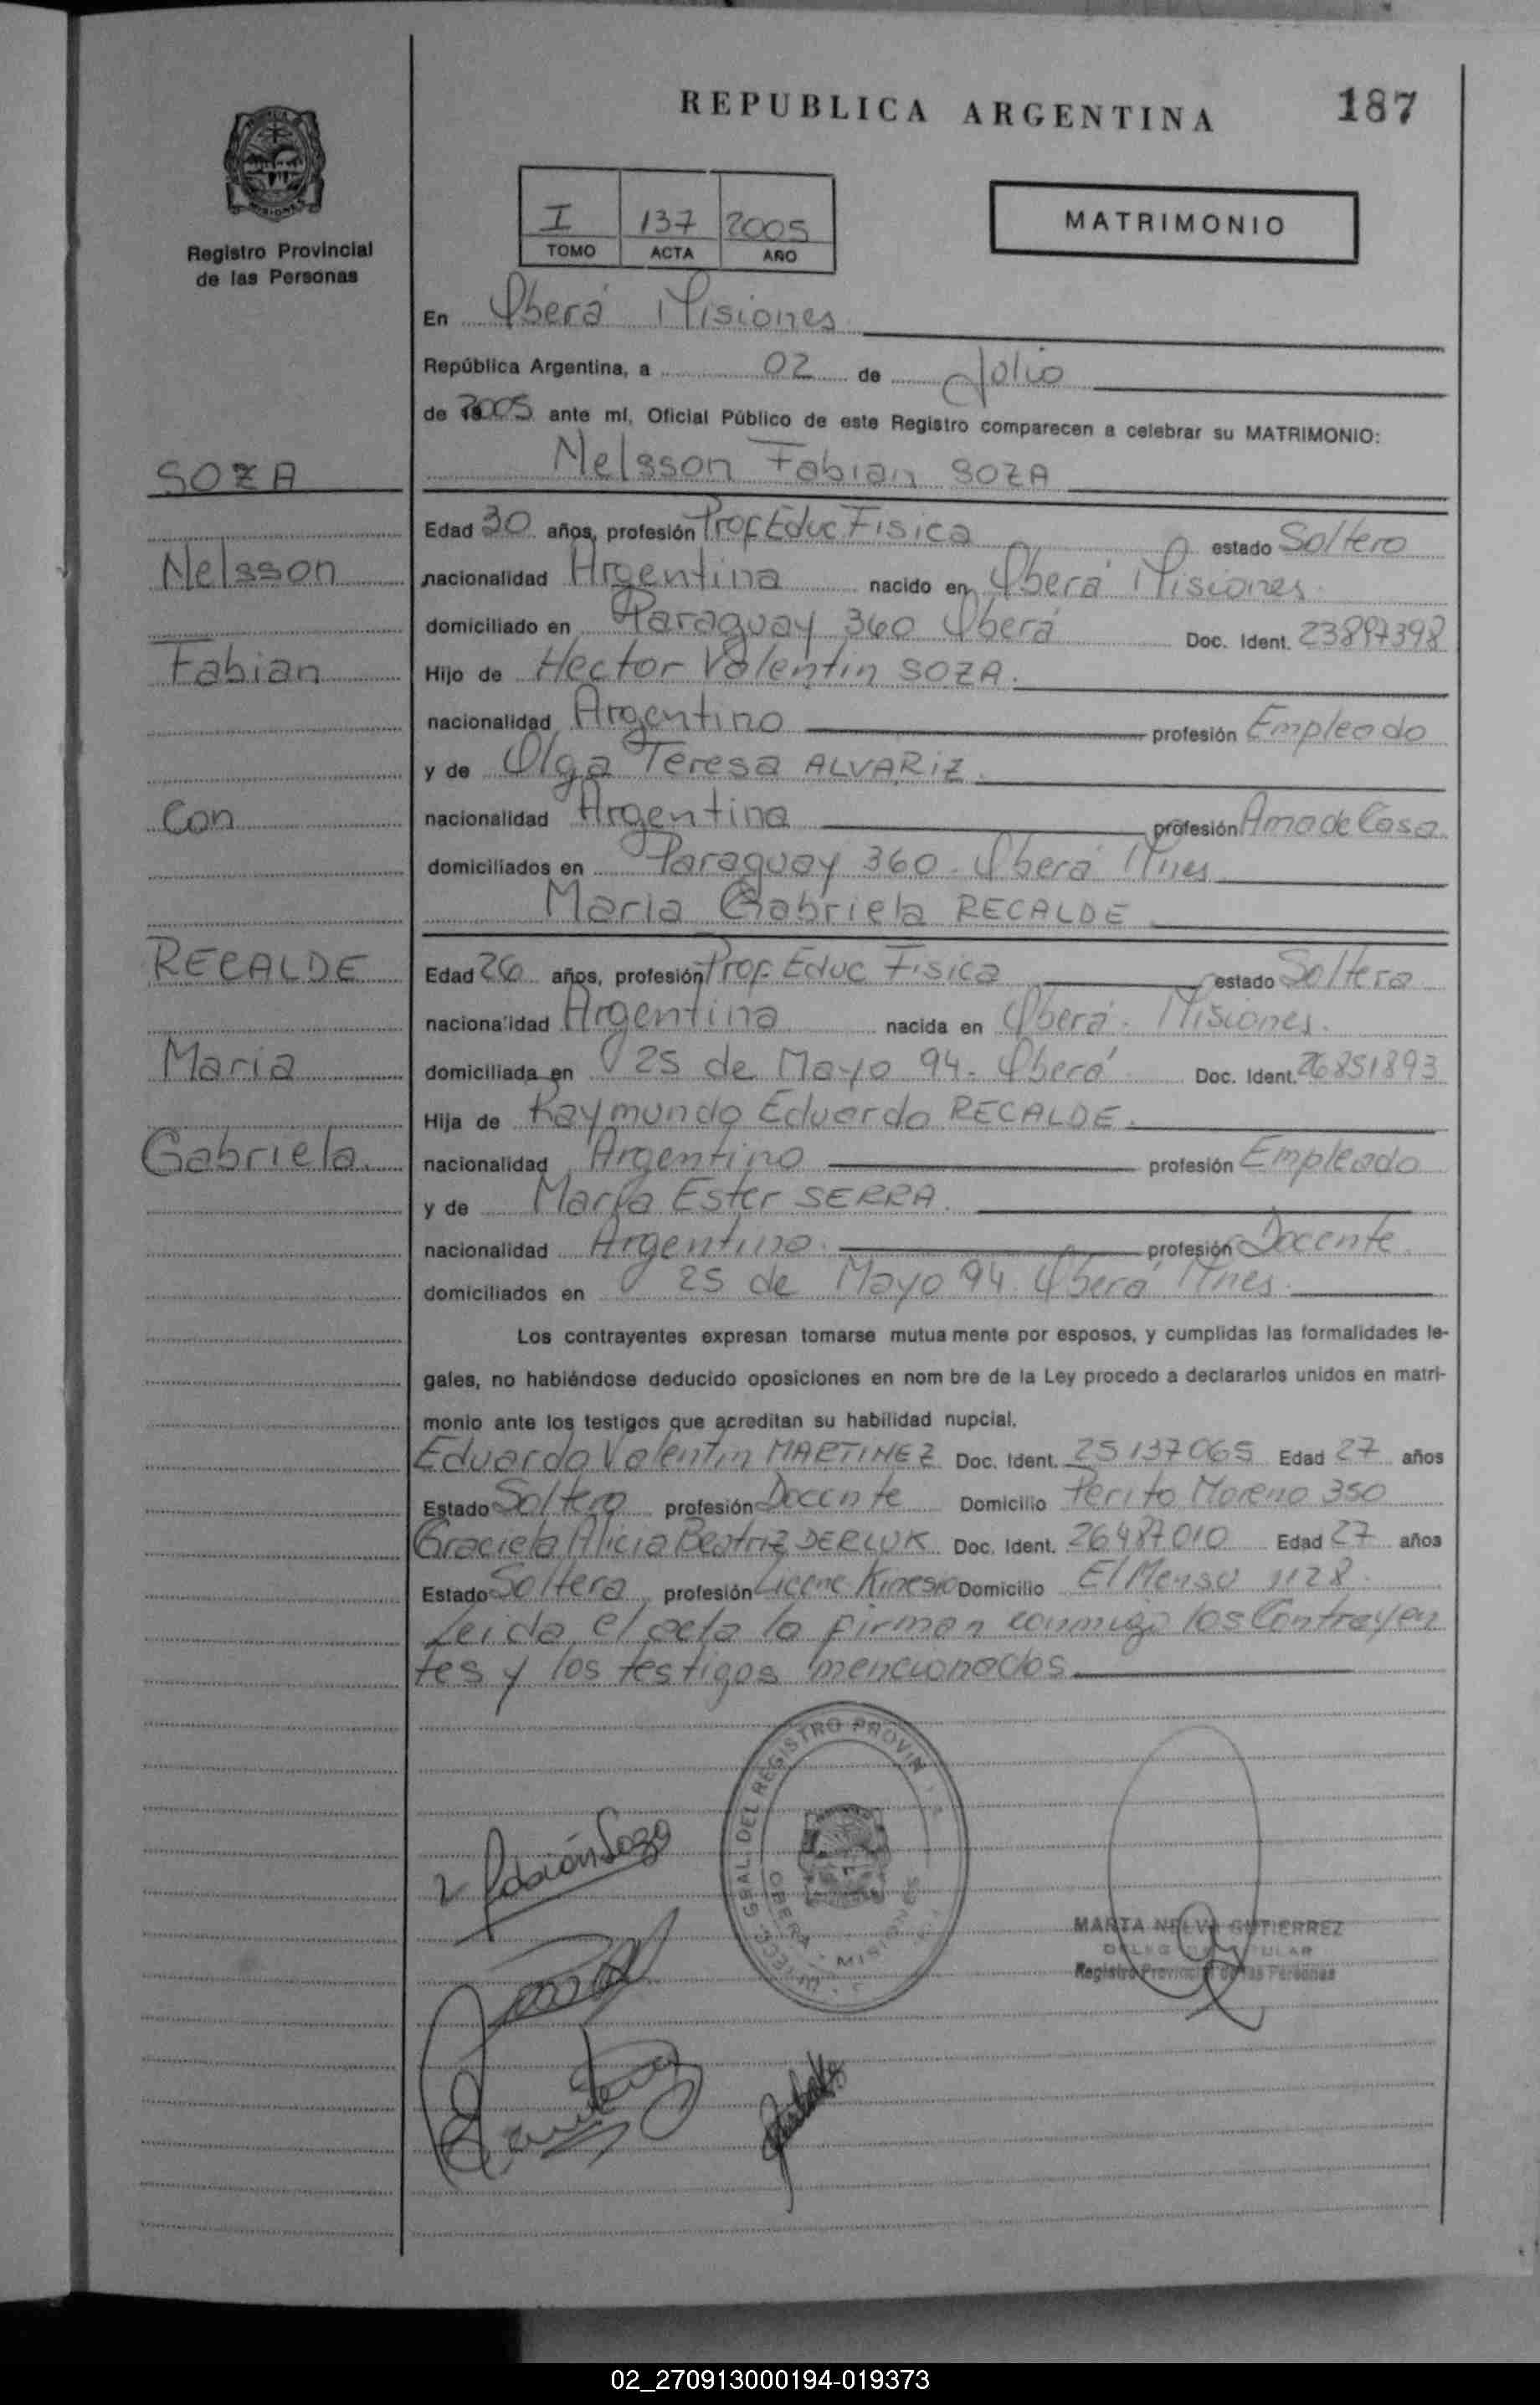 REPUBLICA ARGENTINA
187
Registro Provincial
de las Personas
I 137 2005
TOMO ACTA AÑO
MATRIMONIO
En Oberá Misiones
República Argentina, a 02 de Julio
de 2005 ante mí, Oficial Público de este Registro comparecen a celebrar su MATRIMONIO:
SOZA
Nelsson
Fabian
Con
RECALDE
Maria
Gabriela
Nelsson Fabian SOZA
Edad 30 años, profesión Prof Educ Fisica estado Soltero
nacionalidad Argentina nacido en Oberá Misiones
domiciliado en Paraguay 360 Oberá Doc. Ident. 23897398
Hijo de Hector Valentin SOZA.
nacionalidad Argentino profesión Empleado
y de Olga Teresa ALVARIZ
nacionalidad Argentina profesión Ama de Casa
domiciliados en Paraguay 360 - Oberá Mnes
Maria Gabriela RECALDE
Edad 26 años, profesión Prof Educ Fisica estado Soltera
nacionalidad Argentina nacida en Oberá - Misiones.
domiciliada en 25 de Mayo 94 - Oberá Doc. Ident. 26851893
Hija de Raymundo Eduardo RECALDE.
nacionalidad Argentino profesión Empleado
y de María Ester SERRA.
nacionalidad Argentina. profesión Docente
domiciliados en 25 de Mayo 94. Oberá Mnes.
Los contrayentes expresan tomarse mutua mente por esposos, y cumplidas las formalidades le-
gales, no habiéndose deducido oposiciones en nom bre de la Ley procedo a declararlos unidos en matri-
monio ante los testigos que acreditan su habilidad nupcial.
Eduardo Valentin MARTINEZ Doc. Ident. 25137065 Edad 27 años
Estado Soltero profesión Docente Domicilio Perito Moreno 350
Graciela Alicia Beatriz DERLUK Doc. Ident. 26487010 Edad 27 años
Estado Soltera profesión Licenc Kinesio Domicilio El Mensú 1128.
Leida el acta la firman conmigo los Contrayen
tes y los testigos mencionados
Fabián Soza
OBERA - MISIONES
MARTA NELVA GUTIERREZ
DELEGADA TITULAR
Registro Provincial de las Personas
02_270913000194-019373